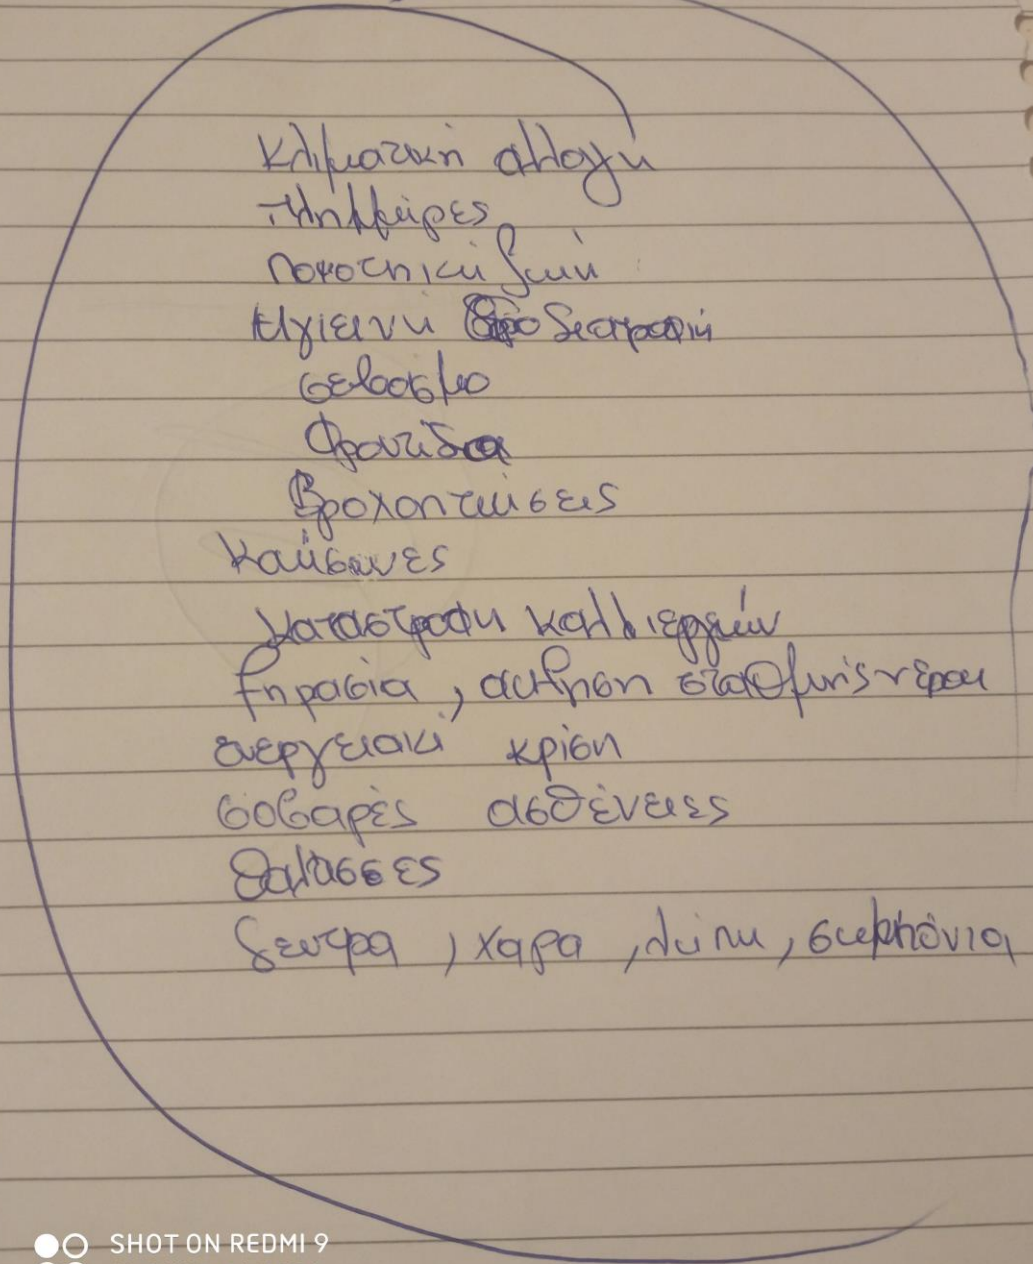 Κλιματική αλλαγή
πλημμύρες
ποιοτηκή ζωή
Υγιεινή διατροφή
σεβασμο
Φροντίδα
Βροχοπτώσεις
Καύσωνες
καταστροφή καλλιεργιών
ξηρασία , αύξηση σταθμής νερου
ενεργειακί κρίση
σοβαρές ασθένειες
θαλασσες
δεντρα , χαρα , λύπη , συμπόνια
SHOT ON REDMI 9